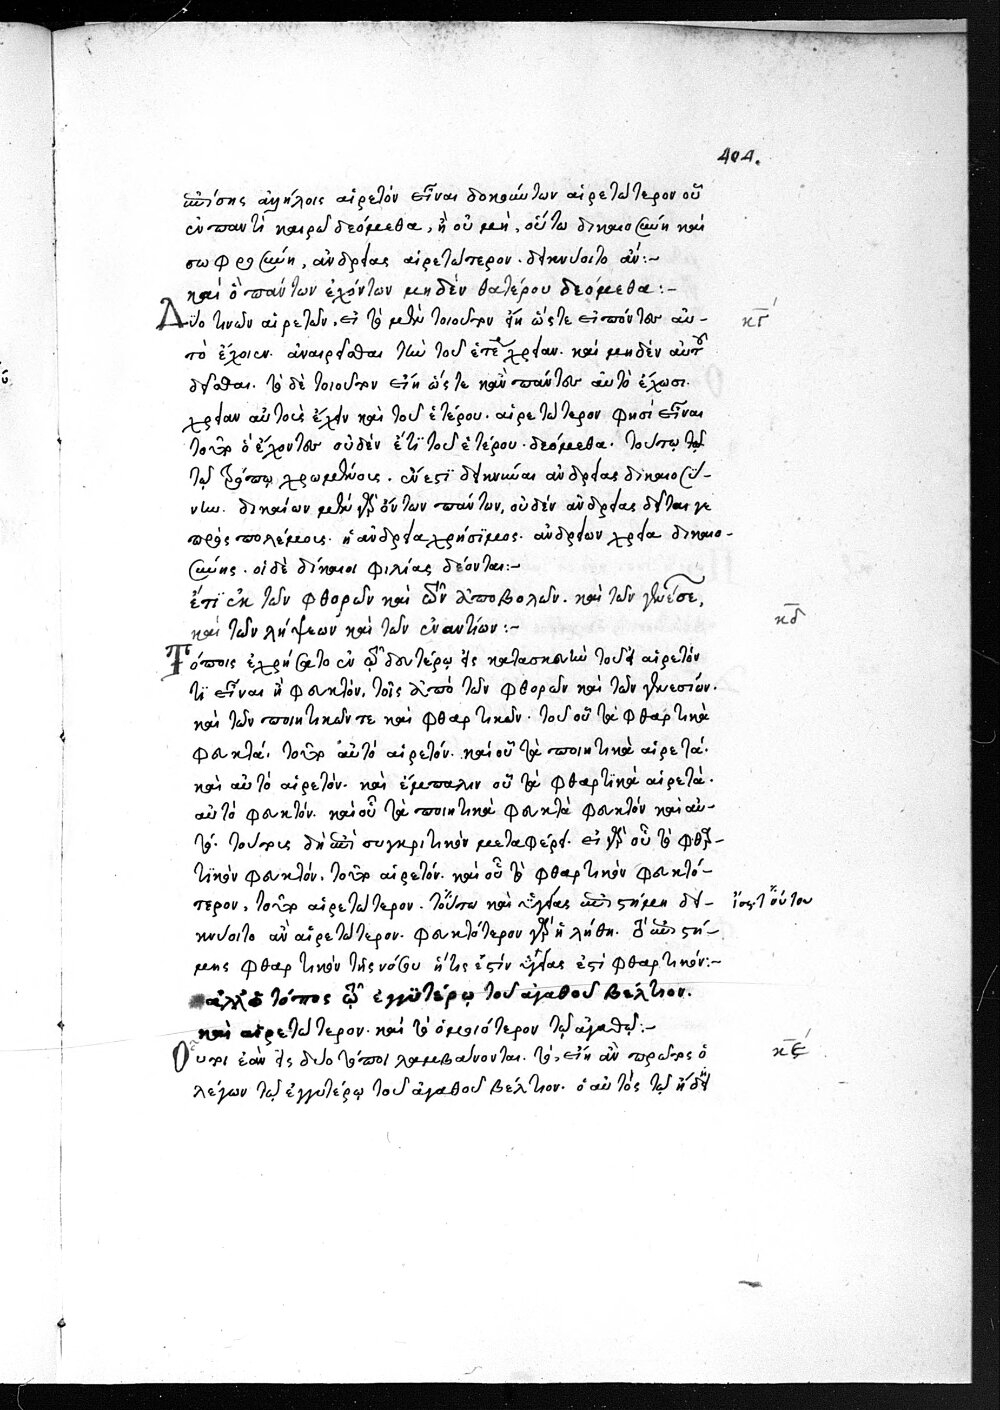 404.
ἐπίσης ἀλλήλοις αἱρετὸν εἶναι δοκούντων αἱρετώτερον οὗ
ἐν παντὶ καιρῷ δεόμεθα, ἢ οὗ μὴ, οὕτω δικαιοσύνη καὶ
σωφροσύνη, ἀνδρείας αἱρετώτερον. δεικνύοιτο ἄν:~
καὶ ὃ πάντων ἐχόντων μηδὲν θατέρου δεόμεθα:~
Δύο τινῶν αἱρετῶν, εἰ τὸ μὲν τοιοῦτον εἴη ὥστε εἰ πάντες αὐ-
τὸ ἔχοιεν. ἀναιρεῖσθαι τὴν τοῦ ἑτέρου χρείαν. καὶ μηδὲν αὐτοῦ
δεῖσθαι. τὸ δὲ τοιοῦτον εἴη ὥστε κἂν πάντες αὐτὸ ἔχωσι.
χρείαν αὐτοῖς ἔχειν καὶ τοῦ ἑτέρου. αἱρετώτερον φησὶ εἶναι
τοῦτο ὃ ἔχοντες οὐδὲν ἔτι τοῦ ἑτέρου. δεόμεθα. τούτῳ
τῷ τρόπῳ χρωμένοις. ἔνεστι δεικνύναι ἀνδρείας δικαιοσύ-
νην. δικαίων μὲν γὰρ ὄντων πάντων, οὐδὲν ἀνδρείας δεῖται γε
πρὸς πολέμους. ἡ ἀνδρεία χρήσιμος. ἀνδρείων χρεία δικαιο-
σύνης. οἱ δὲ δίκαιοι φιλίας δέονται:~
ἔτι ἐκ τῶν φθορῶν καὶ τῶν ἀποβολῶν. καὶ τῶν γενέσεων,
καὶ τῶν λήψεων καὶ τῶν ἐναντίων:~
Τόποις ἐχρήσατο ἐν τῷ δευτέρῳ εἰς κατασκευὴν τοῦ αἱρετόν
τι εἶναι ἢ φευκτόν, τοῖς ἀπὸ τῶν φθορῶν καὶ τῶν γενεσεων.
καὶ τῶν ποιητικῶν τε καὶ φθαρτικῶν. τοῦ οὗ τὰ φθαρτικὰ
φευκτά, τοῦτο αὐτὸ αἱρετόν. καὶ οὗ τὰ ποιητικὰ αἱρετά.
καὶ αὐτὸ αἱρετόν. καὶ ἔμπαλιν οὗ τὰ φθαρτικὰ αἱρετά.
αὐτὸ φευκτόν. καὶ οὗ τὰ ποιητικὰ φευκτὰ φευκτὸν καὶ αὐ-
τό. τούτοις δὴ ἐπὶ συγκριτικὸν μεταφέρει. εἰ γὰρ οὗ τὸ φθαρ-
τικὸν φευκτόν, τοῦτο αἱρετόν. καὶ οὗ τὸ φθαρτικὸν φευκτό-
τερον, τοῦτο αἱρετώτερον. τούτῳ καὶ ὑγείας ἐπιστήμη δει-
κνύοιτο ἂν αἱρετώτερον. φευκτότερον γὰρ ἡ λήθη. ὃ ἐπιστή-
μης φθαρτικὸν τῆς νόσου ἥτις ἐστὶν ὑγείας ἐστὶ φθαρτικόν:~
ἄλλος τόπος τὸ ἐγγυτέρω τοῦ ἀγαθοῦ βέλτιον.
καὶ αἱρετώτερον. καὶ τὸ ὁμοιότερον τῷ ἀγαθῷ:~
λέγων τῷ ἐγγυτέρῳ τοῦ ἀγαθοῦ βέλτιον. ὁ αὐτὸς
κγ
κδ
κε